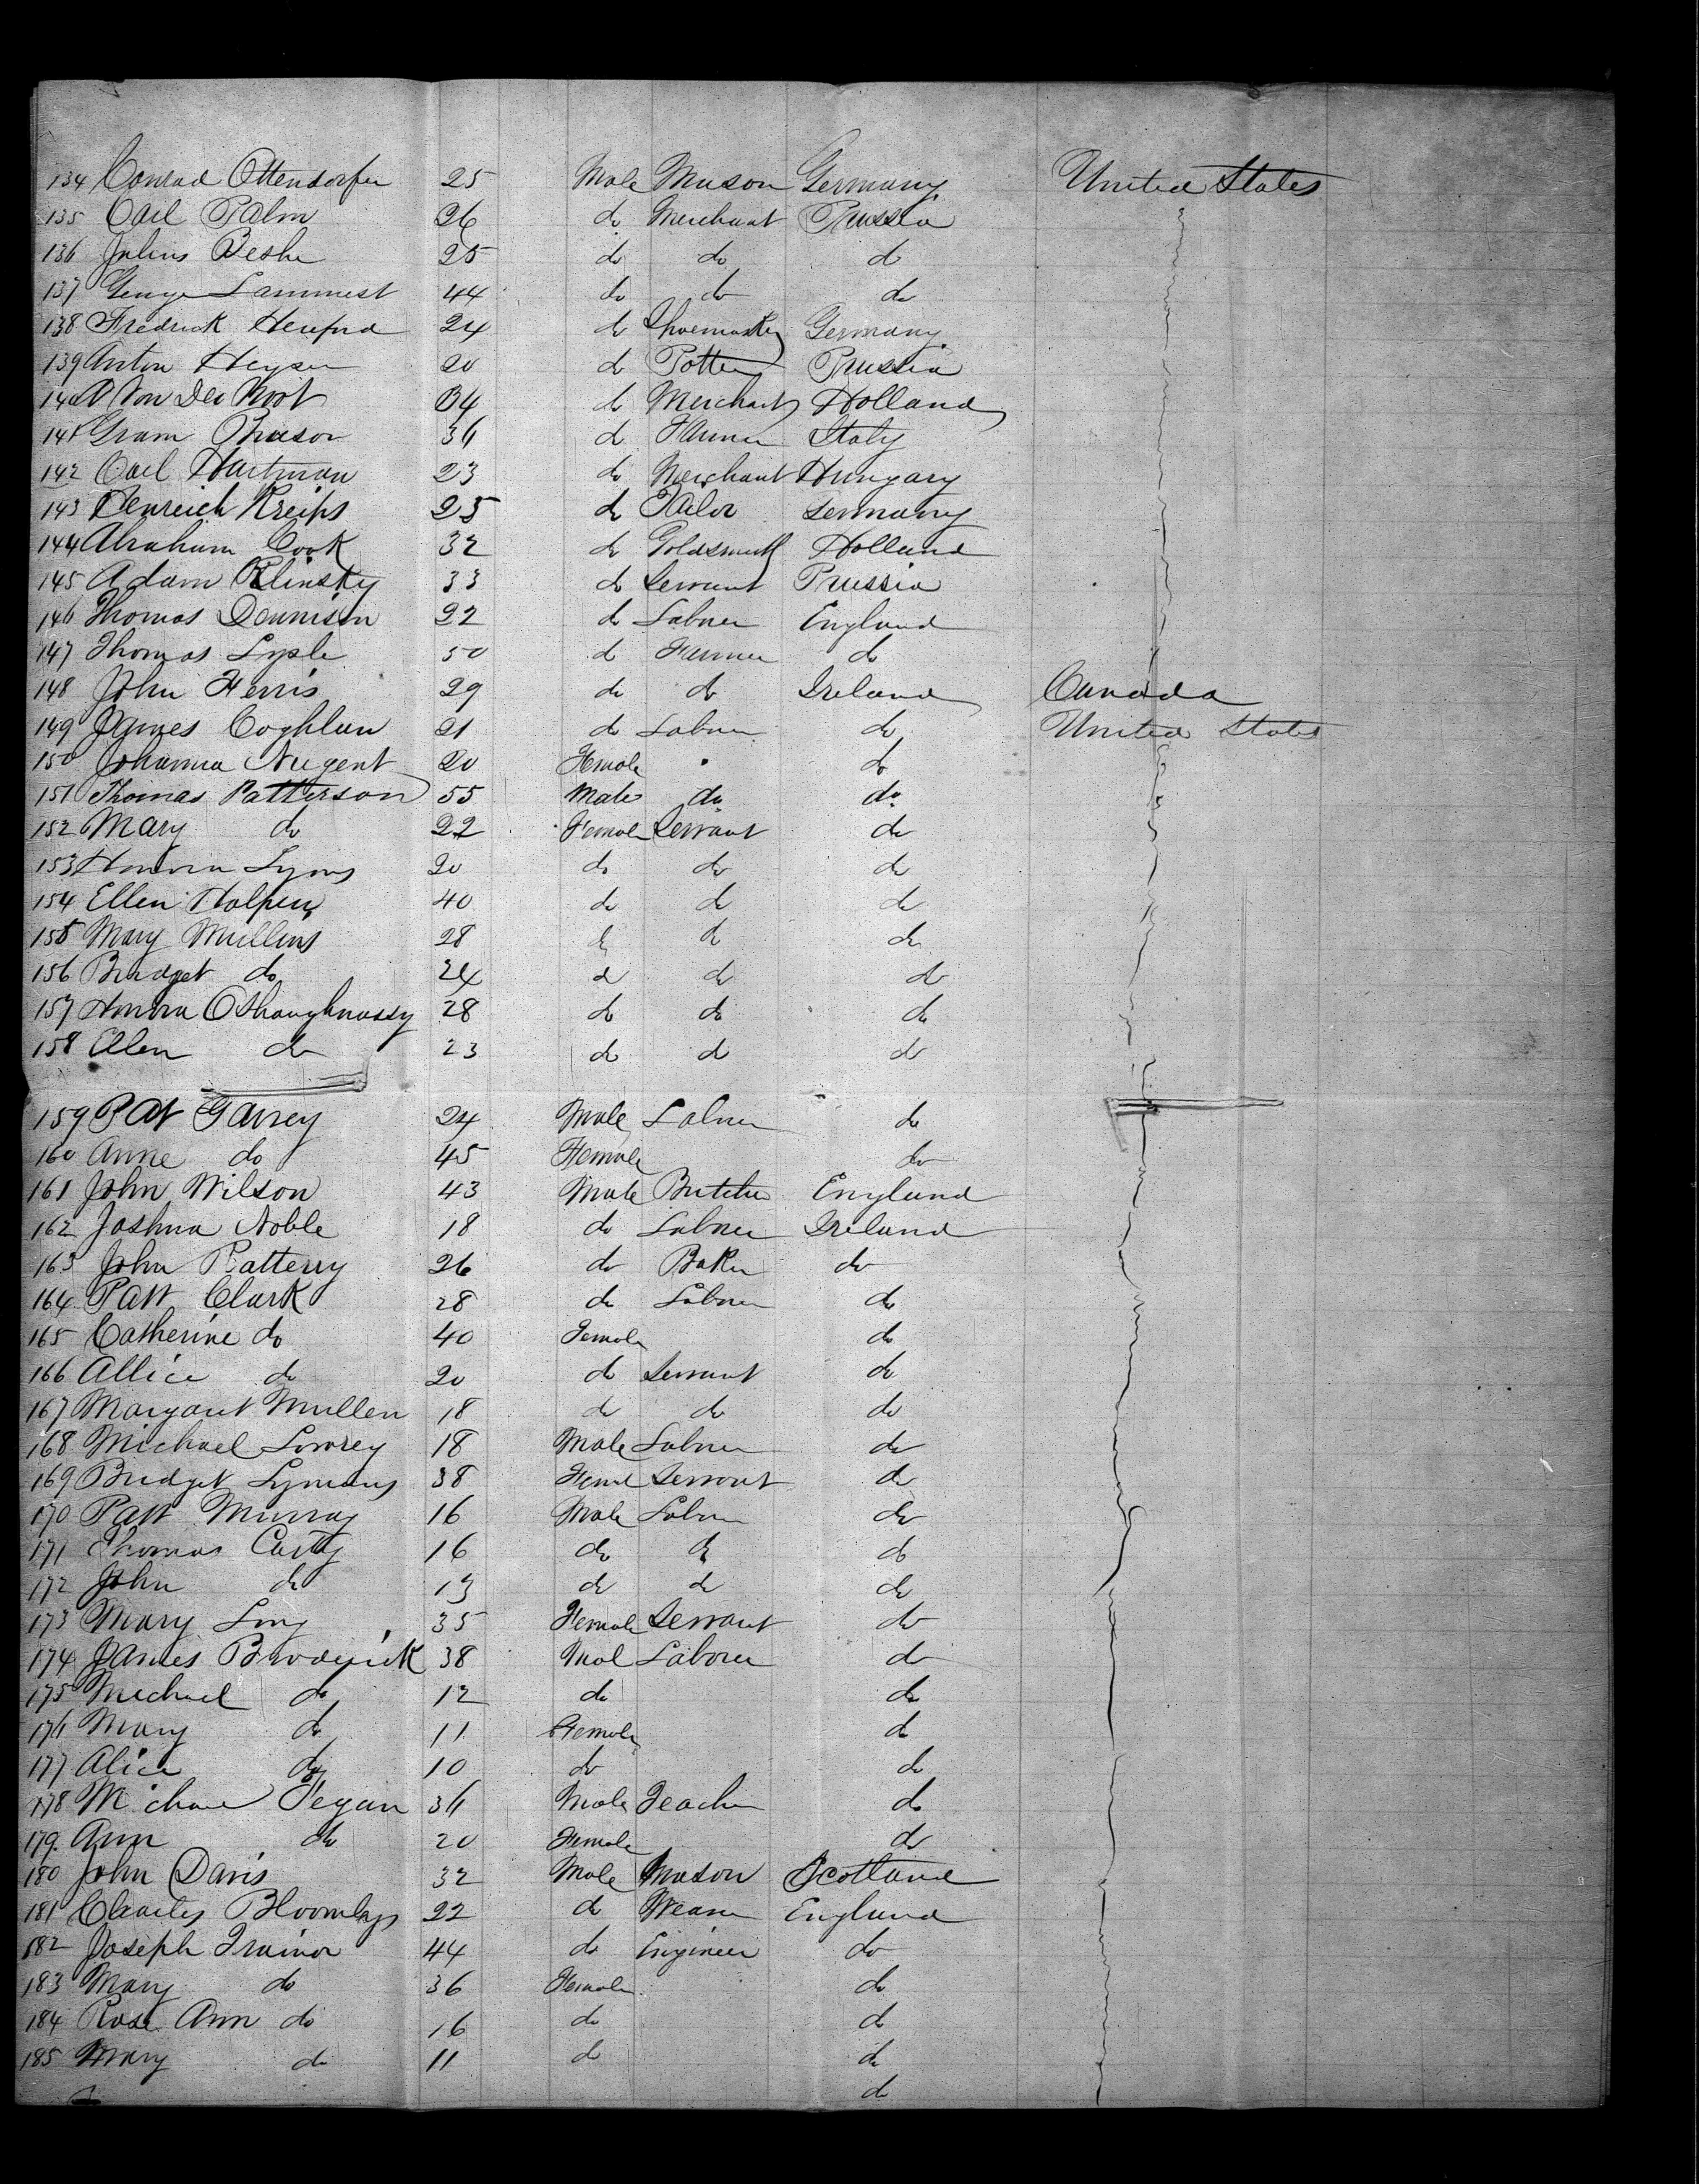 134 Conrad Ottendorfer 25 Male Mason Germany United States
135 Carl Palm 26 do Merchant Prussia
136 Julius Beshe 25 do do do
137 George Lammest 44 do do do
138 Fredrick 24 do Shoemaker Germany
139 Anton Heyser 20 do Potter Prussia
140 A Von Der Noot 34 do Merchant Holland
141 36 do Farmer Italy
142 Carl Hartman 23 do Merchant Hungary
143 Henreich Kreips 25 do Tailor Germany
144 Abraham Cook 32 do Goldsmith Holland
145 Adam Klinsky 33 do Servant Prussia
146 Thomas Dennison 22 do Labner England
147 Thomas Lysle 50 do Farmer do
148 John Ferris 29 do do Ireland Canada
149 James Coghlan 21 do Labner do United States
150 Johanna Nugent 20 Female do
151 Thomas Patterson 55 Male do do
152 Mary do 22 Female Servant do
153 Honora Lyons 20 do do do
154 Ellen Halpin 40 do do do
155 Mary Mullins 28 do do do
156 Bridget do 24 do do do
157 Honora OShaughnassy 28 do do do
158 Ellen do 23 do do do
159 Pat Garvey 24 Male Labner do
160 Anne do 45 Female do
161 John Wilson 43 Male Butcher England
162 Joshua Noble 18 do Labner Ireland
163 John Ratterry 26 do Baker do
164 Patt Clark 28 do Labner do
165 Catherine do 40 Female do
166 Allice do 20 do Servant do
167 Margaret Mullen 18 do do do
168 Michael Lowrey 18 Male Labner do
169 Bridget 38 Femal Servant do
170 Patt Murray 16 Male Labner do
171 Thomas Carty 16 do do do
172 John do 13 do do do
173 Mary Long 35 Female Servant do
174 James Broderick 38 Mal Laborer do
175 Michael do 12 do do
176 Mary do 11 Female do
177 Alice do 10 do do
178 Michael Fegan 36 Male Teacher do
179 Ann do 20 Female do
180 John Davis 32 Male Mason Scotland
181 Charles 22 do Weaver England
182 Joseph Trainor 44 do Engineer do
183 Mary do 36 Female do
184 Rose Ann do 16 do do
185 Mary do 11 do do
do